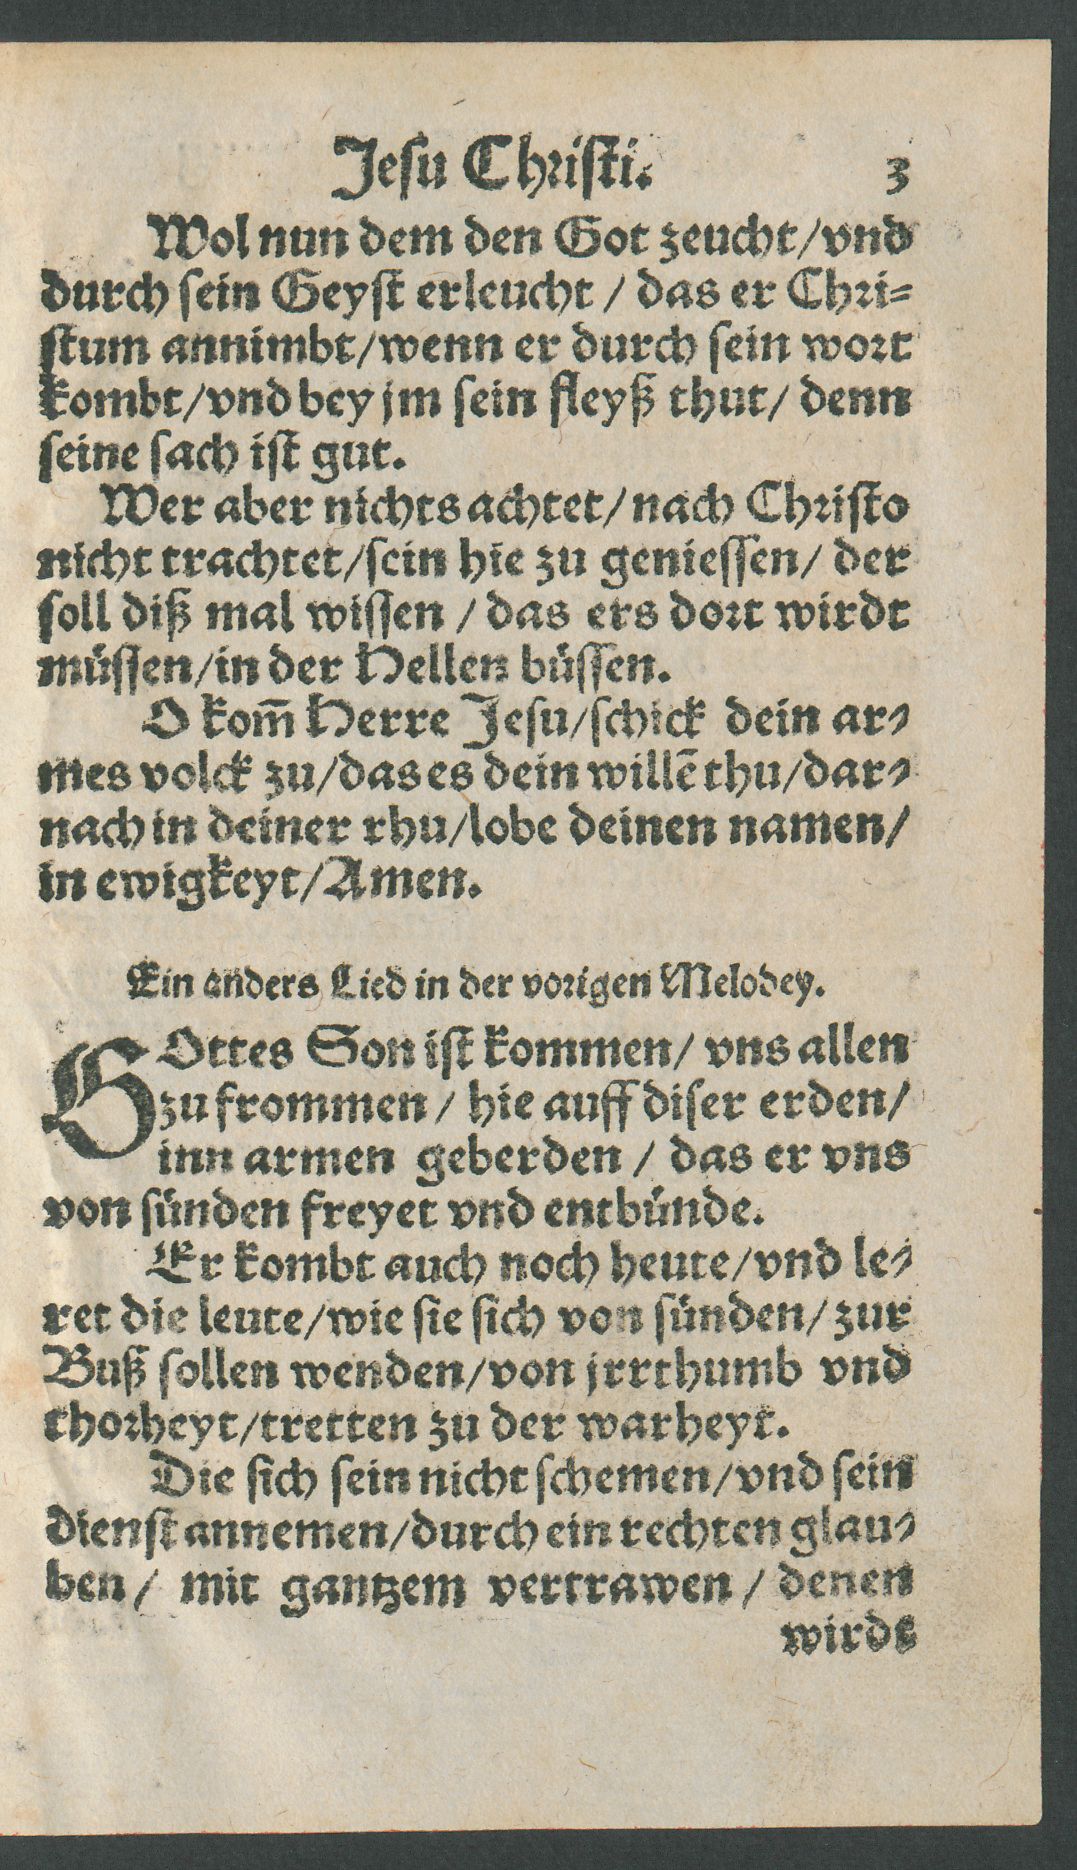 Jesu Christi. 3
Wol nun dem den Got zeucht/vnd
durch sein Geyst erleucht / das er Chri-
stum annimbt/wenn er durch sein wort
kombt/vnd bey jm sein fleyß thut/ denn
seine sach ist gut.
Wer aber nichts achtet/nach Christo
nicht trachtet/sein hie zu geniessen/ der
soll diß mal wissen / das ers dort wirdt
müssen/in der Hellen büssen.
O kom̄ Herre Jesu/schick dein ar-
mes volck zu/das es dein willē thu/dar-
nach in deiner rhu/lobe deinen namen/
in ewigkeyt/Amen.
Ein anders Lied in der vorigen Melodey.
GOttes Son ist kommen/ vns allen
zu frommen / hie auff diser erden/
inn armen geberden / das er vns
von sünden freyet vnd entbünde.
Er kombt auch noch heute/vnd le-
ret die leute/wie sie sich von sünden/zur
Buß sollen wenden/von jrrthumb vnd
thorheyt/tretten zu der warheyt.
Die sich sein nicht schemen/vnd sein
dienst annemen/durch ein rechten glau-
ben/ mit gantzem vertrawen / denen
wirdt